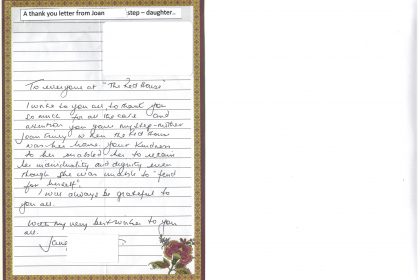 A thank you letter from Joan step – daughter..
To everyone at "The Red House"
I write to you all to thank you
so much for all the care and
attention you gave my step-mother
Joan when the Red House
was her home. Your kindness
to her enabled her to retain
her individuality and dignity even
though she was unable to "fend
for herself".
I will always be grateful to
you all.
With my very best wishes to you
all.